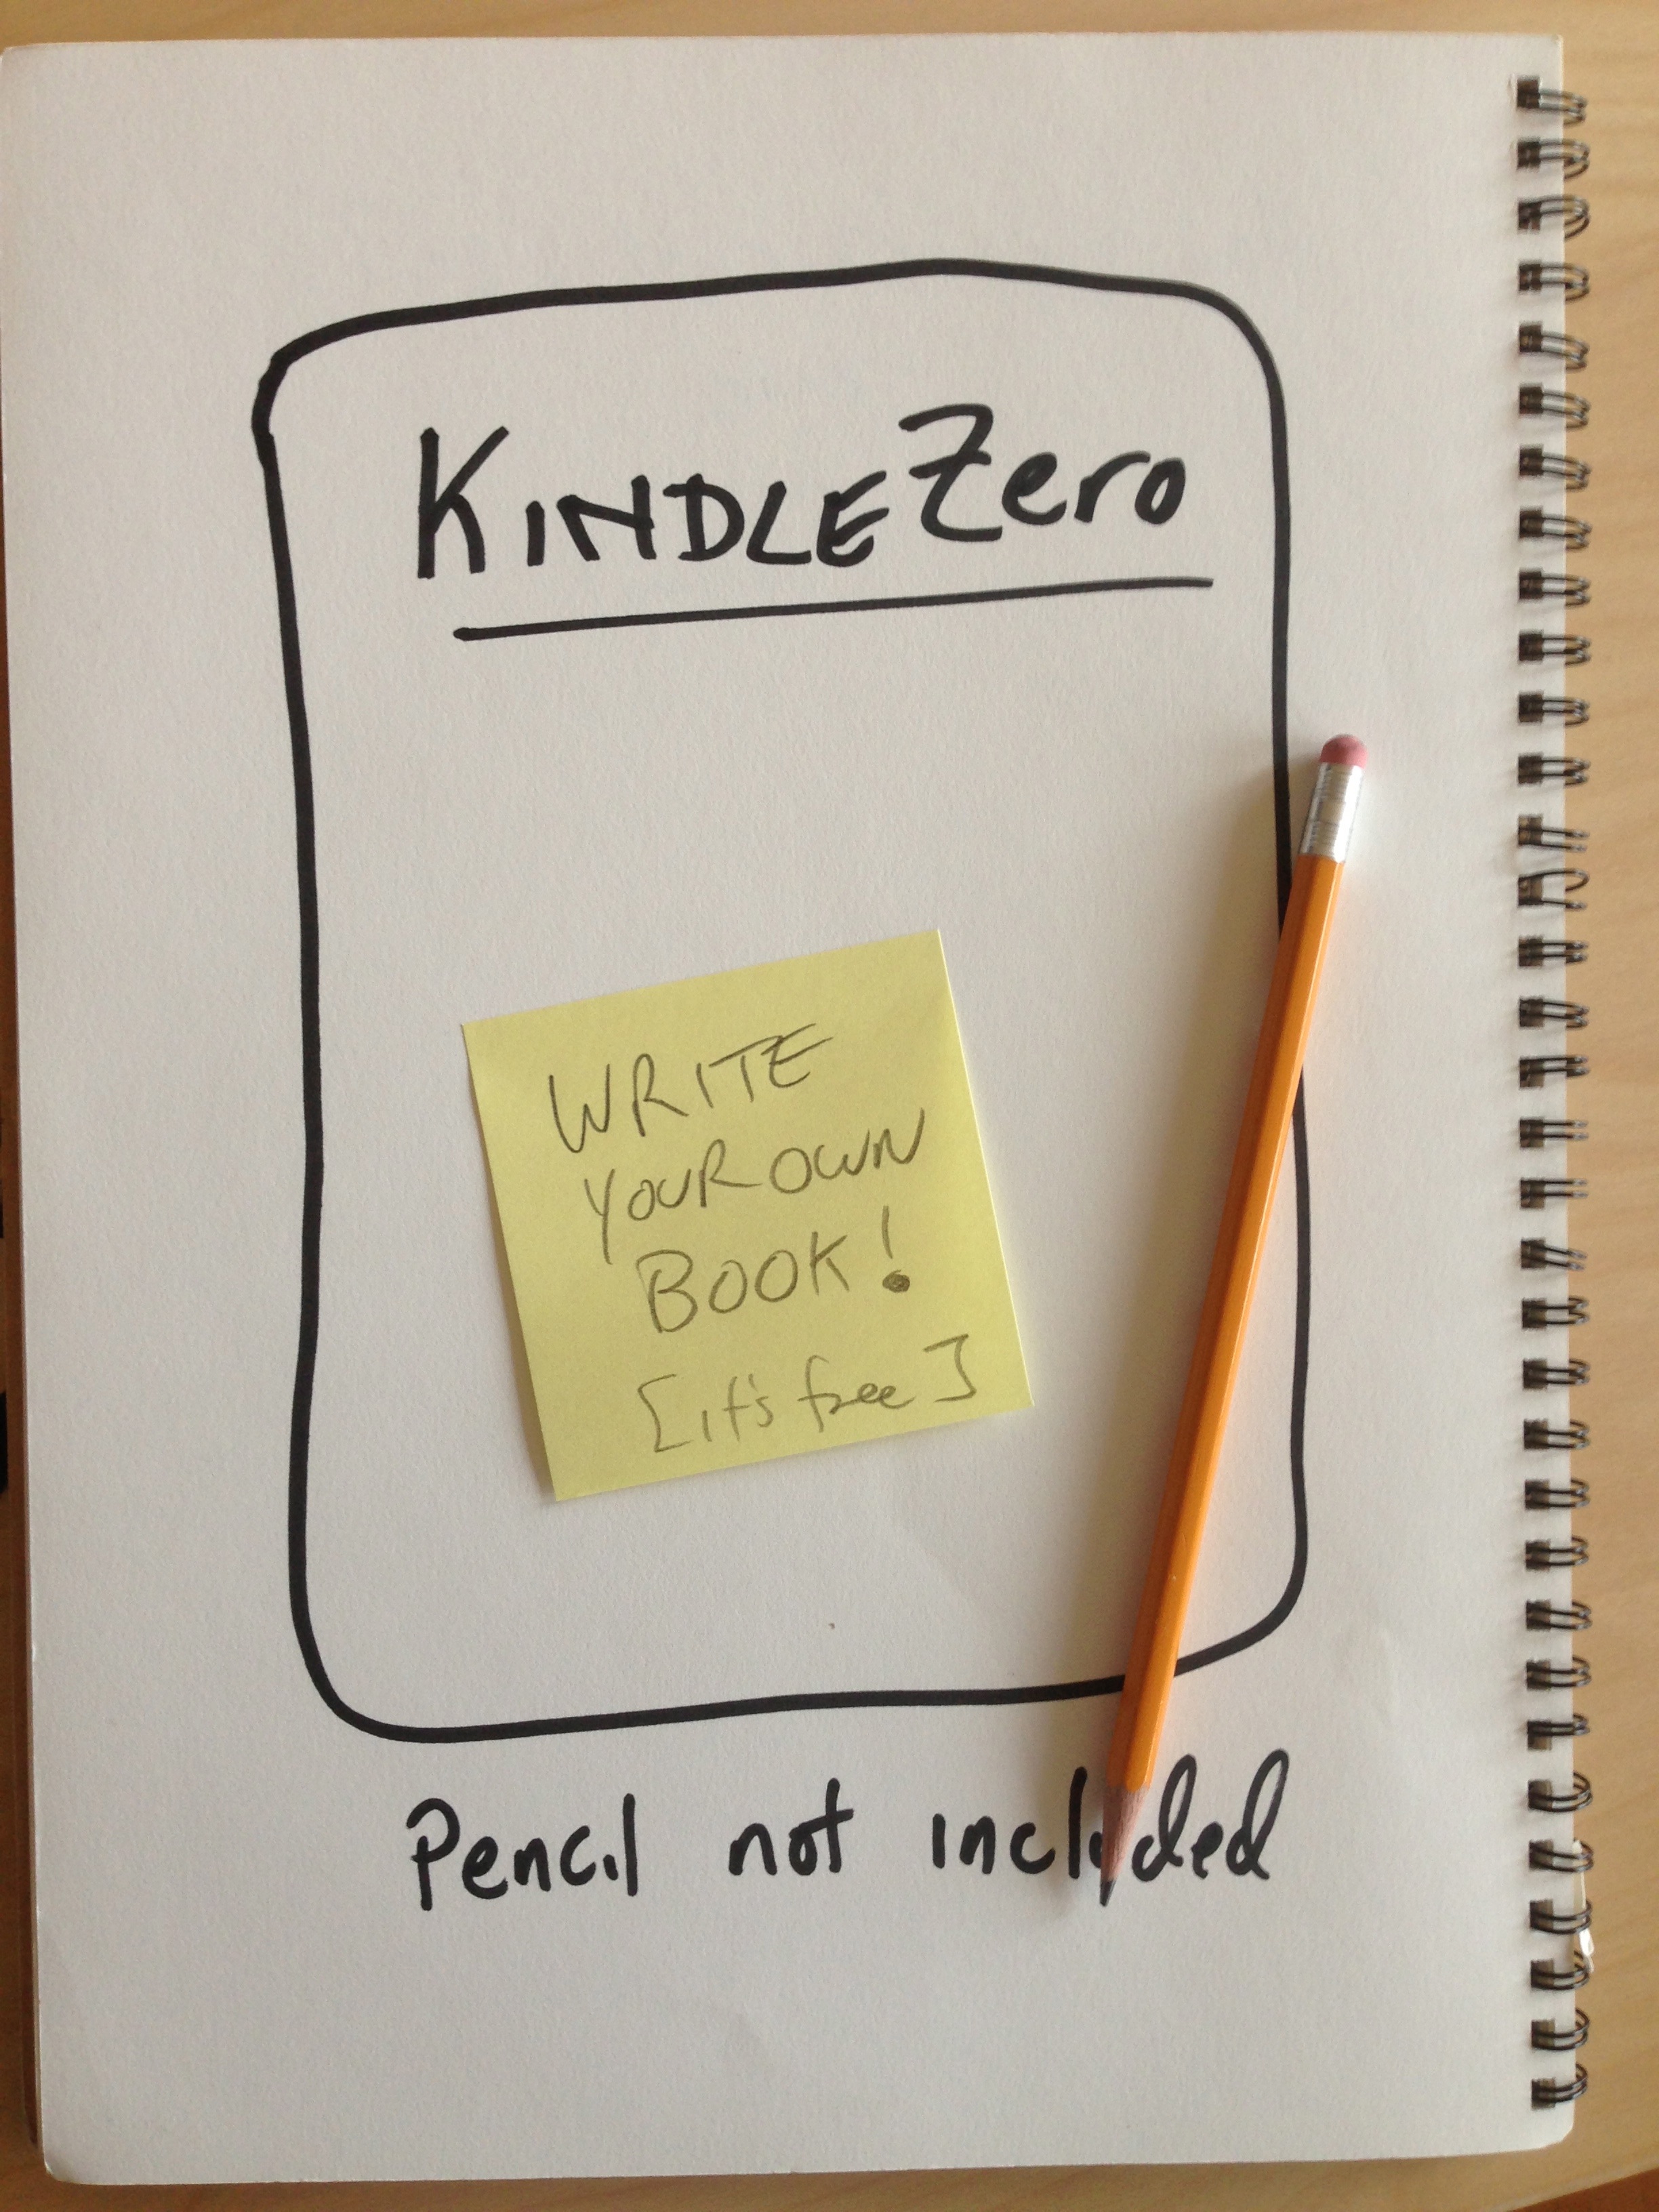 KINDLE Zero
WRITE
YOUR OWN
BOOK!
[it's free]
Pencil not included